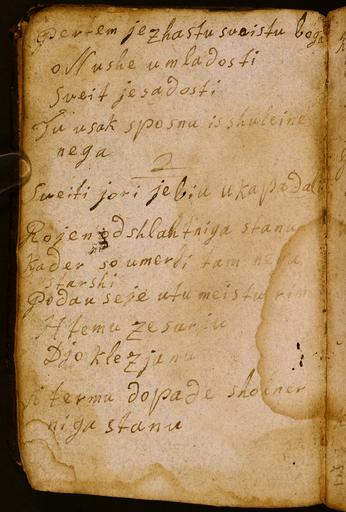 pertem je zhastu sveistu boga
o Nushe umladosti
Sveit je sadosti
Tu usak sposna is shuleine
nega
2
Sveiti jori je biu ukapadal
Rojen od shlahtniga stanu
Kader so umerli tam nega
starshi
Podau se je utu meistu rim
H temu zesarju
Dioklezjanu
H termu dopade shouner
niga stanu